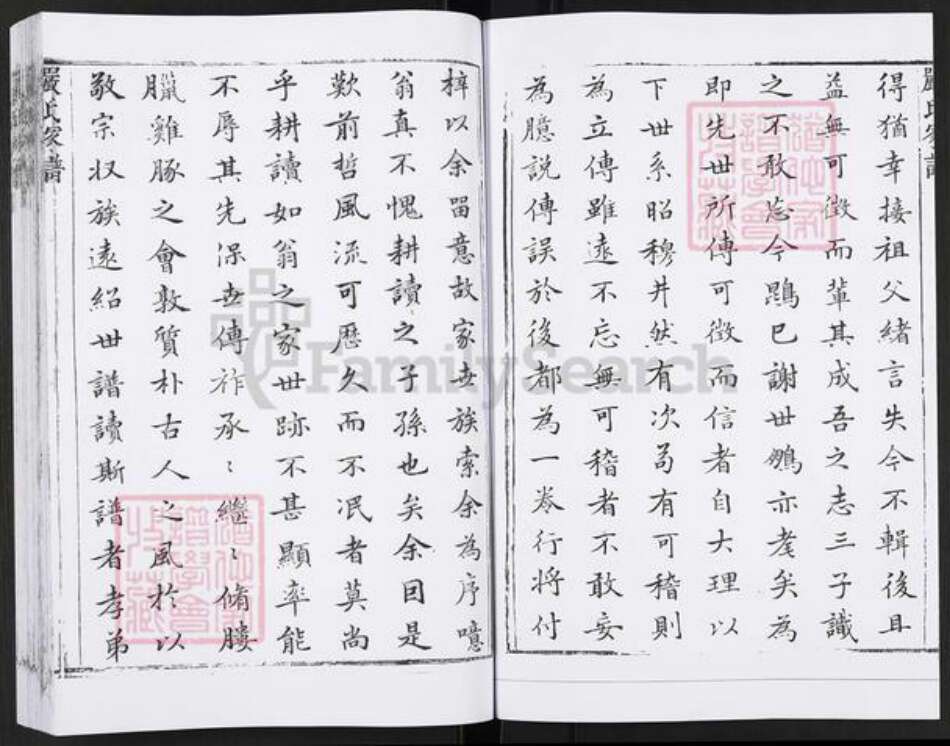 嚴氏家譜
得猶幸接祖父緒言失今不輯後且
益無可徵而輩其成吾之志三子識
之不敢忘今鵾已謝世鶵亦耄矣為
即先世所傳可徵而信者自大理以
下世系昭穆井然有次苟有可稽則
為立傳雖遠不忘無可稽者不敢妄
為臆說傳誤於後都為一卷行將付
梓以余留意故家世族索余為序噫
翁真不愧耕讀之子孫也矣余因是
歎前哲風流可歷久而不泯者莫尚
乎耕讀如翁之家世跡不甚顯率能
不辱其先深世傳祚承〻繼〻脩膢
臘雞豚之會敦質朴古人之風於以
敬宗収族遠紹世譜讀斯譜者孝弟
嚴氏家譜
FamilySearch